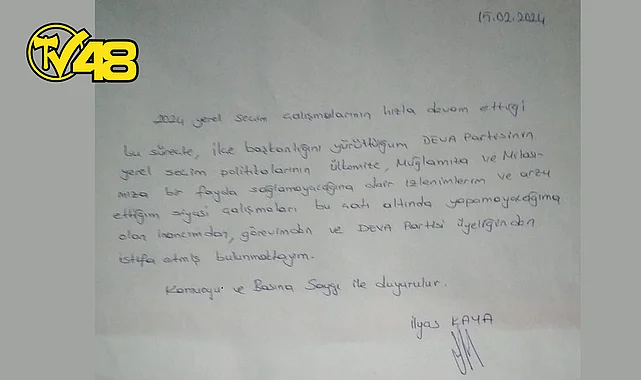 TV48
15.02.2024
2024 yerel seçim çalışmalarının hızla devam ettiği
bu süreçte, ilçe başkanlığını yürüttüğüm DEVA Partisinin
yerel seçim politikalarının ülkemize, Muğlamıza ve Milası-
mıza bir fayda sağlamayacağına dair izlenimlerim ve arzu
ettiğim siyasi çalışmaları bu çatı altında yapamayacağıma
olan inancımdan, görevimden ve DEVA Partisi üyeliğinden
istifa etmiş bulunmaktayım.
Kamuoyu ve Basına Saygı ile duyurulur.
İlyas KAYA